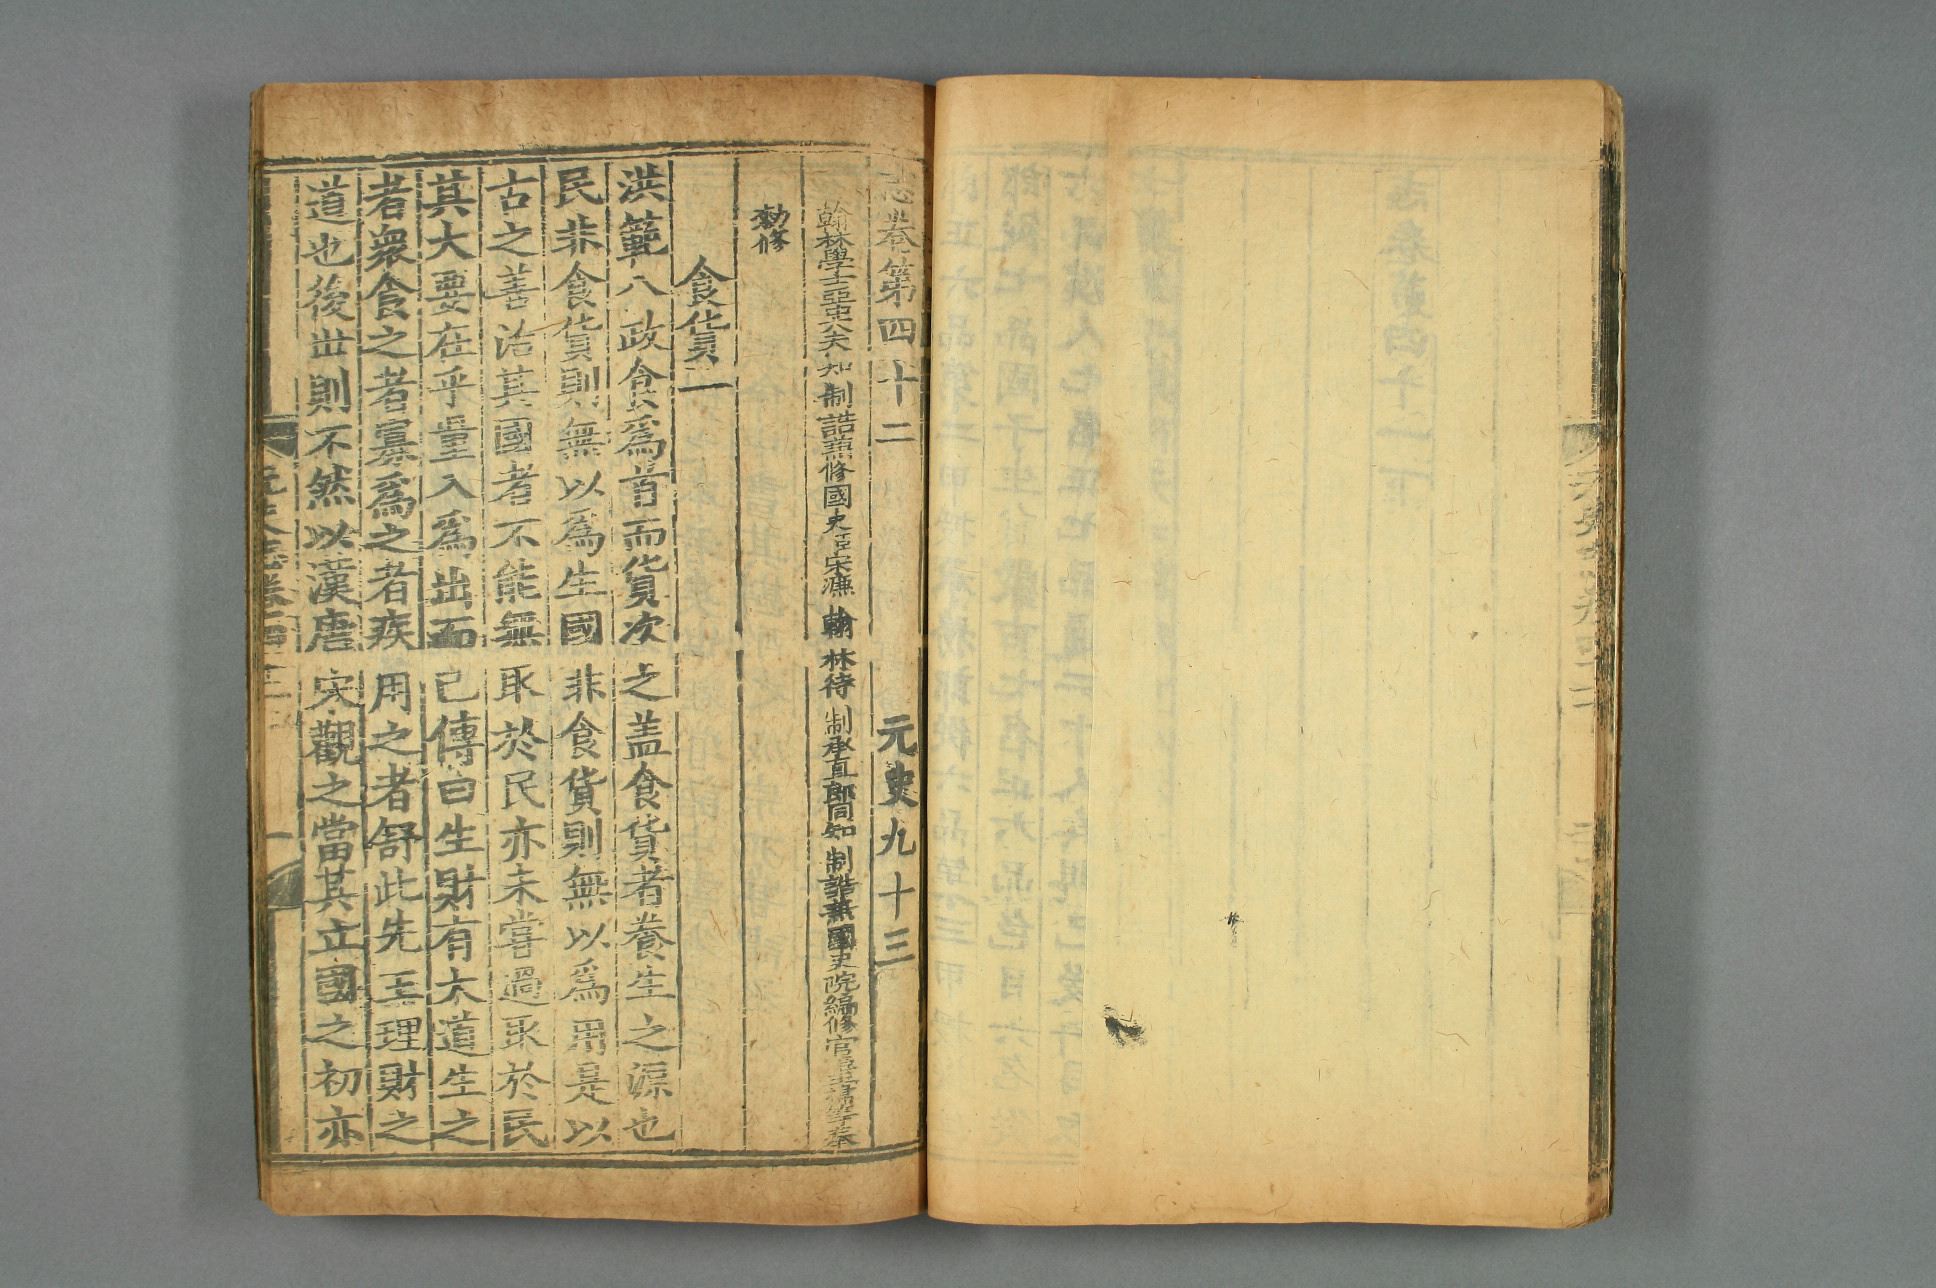 志卷第四十二 元史九十三
翰林學士亞中大夫知制誥兼修國史臣宋濂翰林待制承直郎同知制誥兼國史院編修官臣王禕等奉
勑修
食貨一
洪範八政食爲首而貨次之盖食貨者養生之源也
民非食貨則無以爲生國非食貨則無以爲用是以
古之善治其國者不能無取於民亦未嘗過取於民
其大要在乎量入爲出而已傳曰生財有大道生之
者衆食之者寡爲之者疾用之者舒此先王理財之
道也後世則不然以漢唐宋觀之當其立國之初亦
元史志卷四十二 一